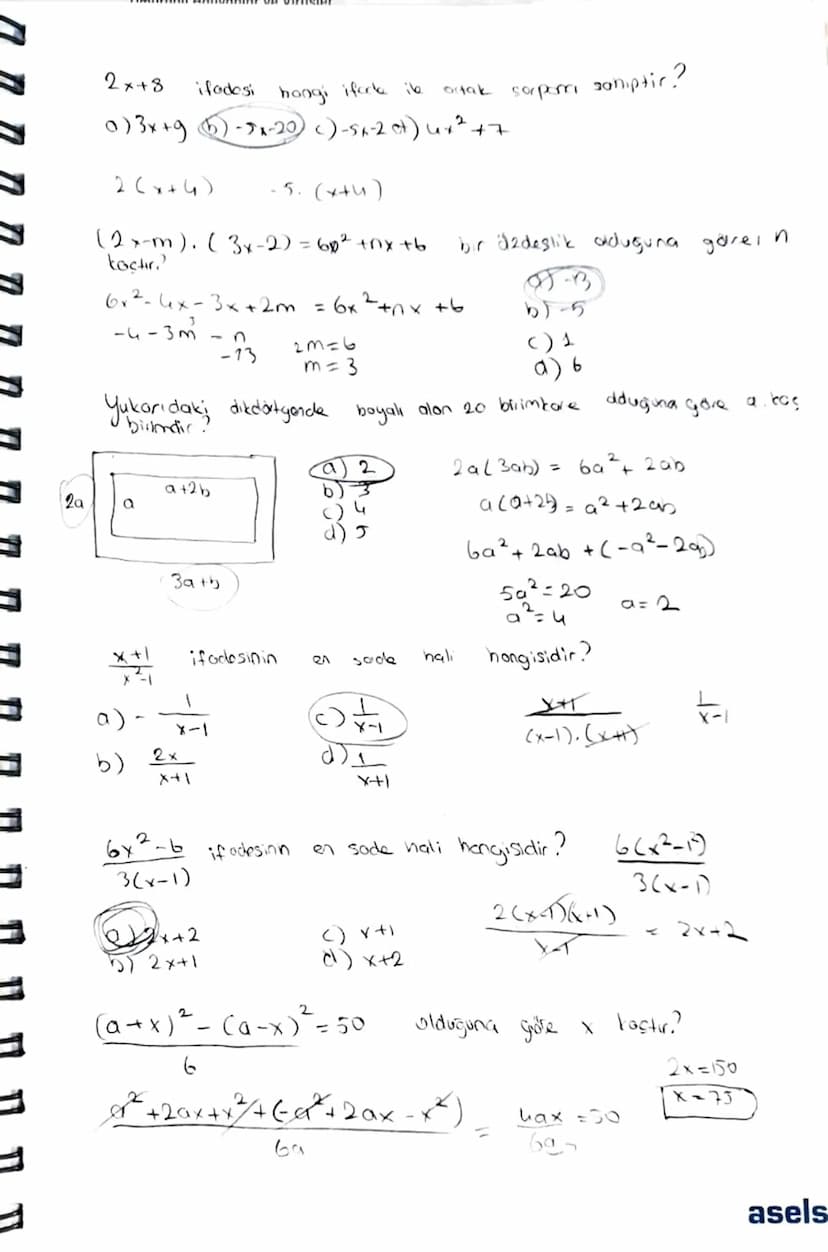 2x+8 ifadesi hangi ifade ile ortak çarpanı sahiptir?
a) 3x+9 b) -5x-20 c) -5x-2 d) 4x²+7
2(x+4) -5.(x+4)
(2x-m).(3x-2)=6x²+nx+6 bir özdeşlik olduğuna göre, n
kaçtır?
a) -13
6x²-4x-3x+2m = 6x²+nx+6
b) -5
-4-3m - n
3
-13
2m=6
m=3
c) 1
d) 6
Yukarıdaki dikdörtgende boyalı alan 20 birimkare olduğuna göre a kaç
birimdir?
2a
a
a+2b
3a+b
a) 2
b) 3
c) 4
d) 5
2a(3ab) = 6a²+2ab
a(a+2b)=a²+2ab
6a²+2ab+(-a²-2ab)
5a²=20
a²=4
a=2
x+1
x²-1
ifadesinin en sade hali hangisidir?
a) - 1
x-1
c) 1
x-1
b) 2x
x+1
d) 1
x+1
x+1
(x-1).(x+1)
1
x-1
6x²-6
3(x-1)
ifadesinn en sade hali hangisidir?
6(x²-1²)
3(x-1)
a) 2x+2
b) 2x+1
c) x+1
d) x+2
2(x-1)(x+1)
x-1
= 2x+2
(a+x)²-(a-x)²=50 olduğuna göre x kaçtır?
6
2x=150
x=75
a²+2ax+x²+(-a²+2ax-x²)
6a
=
4ax=50
6a
asels